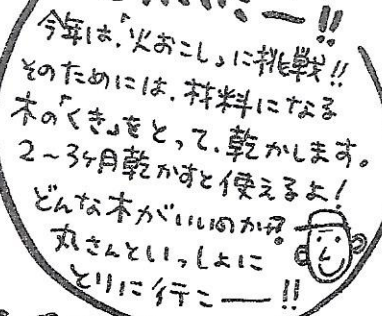 ー!!
今年は、「火おこし」に挑戦!!
そのためには、材料になる
木の「くき」をとって、乾かします。
2～3ヶ月乾かすと使えるよ!
どんな木がいいのかは
丸さんといっしょに
とりに行こ――!!